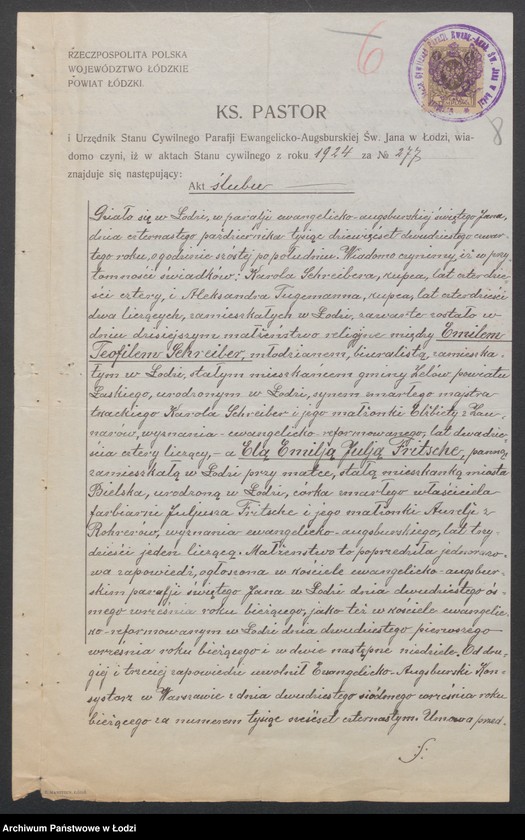 6
8
RZECZPOSPOLITA POLSKA
WOJEWÓDZTWO ŁÓDZKIE
POWIAT ŁÓDZKI.
KS. PASTOR
i Urzędnik Stanu Cywilnego Parafji Ewangelicko-Augsburskiej Św. Jana w Łodzi, wia-
domo czyni, iż w aktach Stanu cywilnego z roku 1924 za № 277
znajduje się następujący:
Akt ślubu
Działo się w Łodzi, w parafji ewangelicko-augsburskiej świętego Jana,
dnia czternastego października tysiąc dziewięćset dwudziestego czwar-
tego roku, o godzinie szóstej po południu. Wiadomo czynimy, iż w przy-
tomności świadków: Karola Schreibera, kupca, lat czterdzie-
ści cztery, i Aleksandra Tugemanna, kupca, lat czterdzieści
dwa liczących, zamieszkałych w Łodzi, zawarte zostało w
dniu dzisiejszym małżeństwo religijne między Emilem
Teofilem Schreiber, młodzianem, biuralistą, zamieszka-
łym w Łodzi, stałym mieszkańcem gminy Zelów powiatu
Łaskiego, urodzonym w Łodzi, synem zmarłego majstra
tkackiego Karola Schreiber i jego małżonki Elżbiety z
wyznania ewangelicko-reformowanego, lat dwadzie-
ścia cztery liczący, – a Elą Emilją Julją Fritsche, panną,
zamieszkałą w Łodzi przy matce, stałą mieszkanką miasta
Bielska, urodzoną w Łodzi, córką zmarłego właściciela
farbiarni Juljusza Fritsche i jego małżonki Aurelji z
Rohrerów, wyznania ewangelicko-augsburskiego, lat trzy-
dzieści jeden liczącą. Małżeństwo to poprzedziła jednorazo-
wa zapowiedź, ogłoszona w kościele ewangelicko-augsbur-
skim parafji świętego Jana w Łodzi dnia dwudziestego ós-
mego września roku bieżącego, jako też w kościele ewangelic-
ko-reformowanym w Łodzi dnia dwudziestego pierwszego
września roku bieżącego i w dwie następne niedziele. Od dru-
giej i trzeciej zapowiedzi uwolnił Ewangelicko-Augsburski Kon-
systorz w Warszawie z dnia dwudziestego siódmego września roku
bieżącego za numerem tysiąc sześćset czternastym. Umowa przed-
Archiwum Państwowe w Łodzi